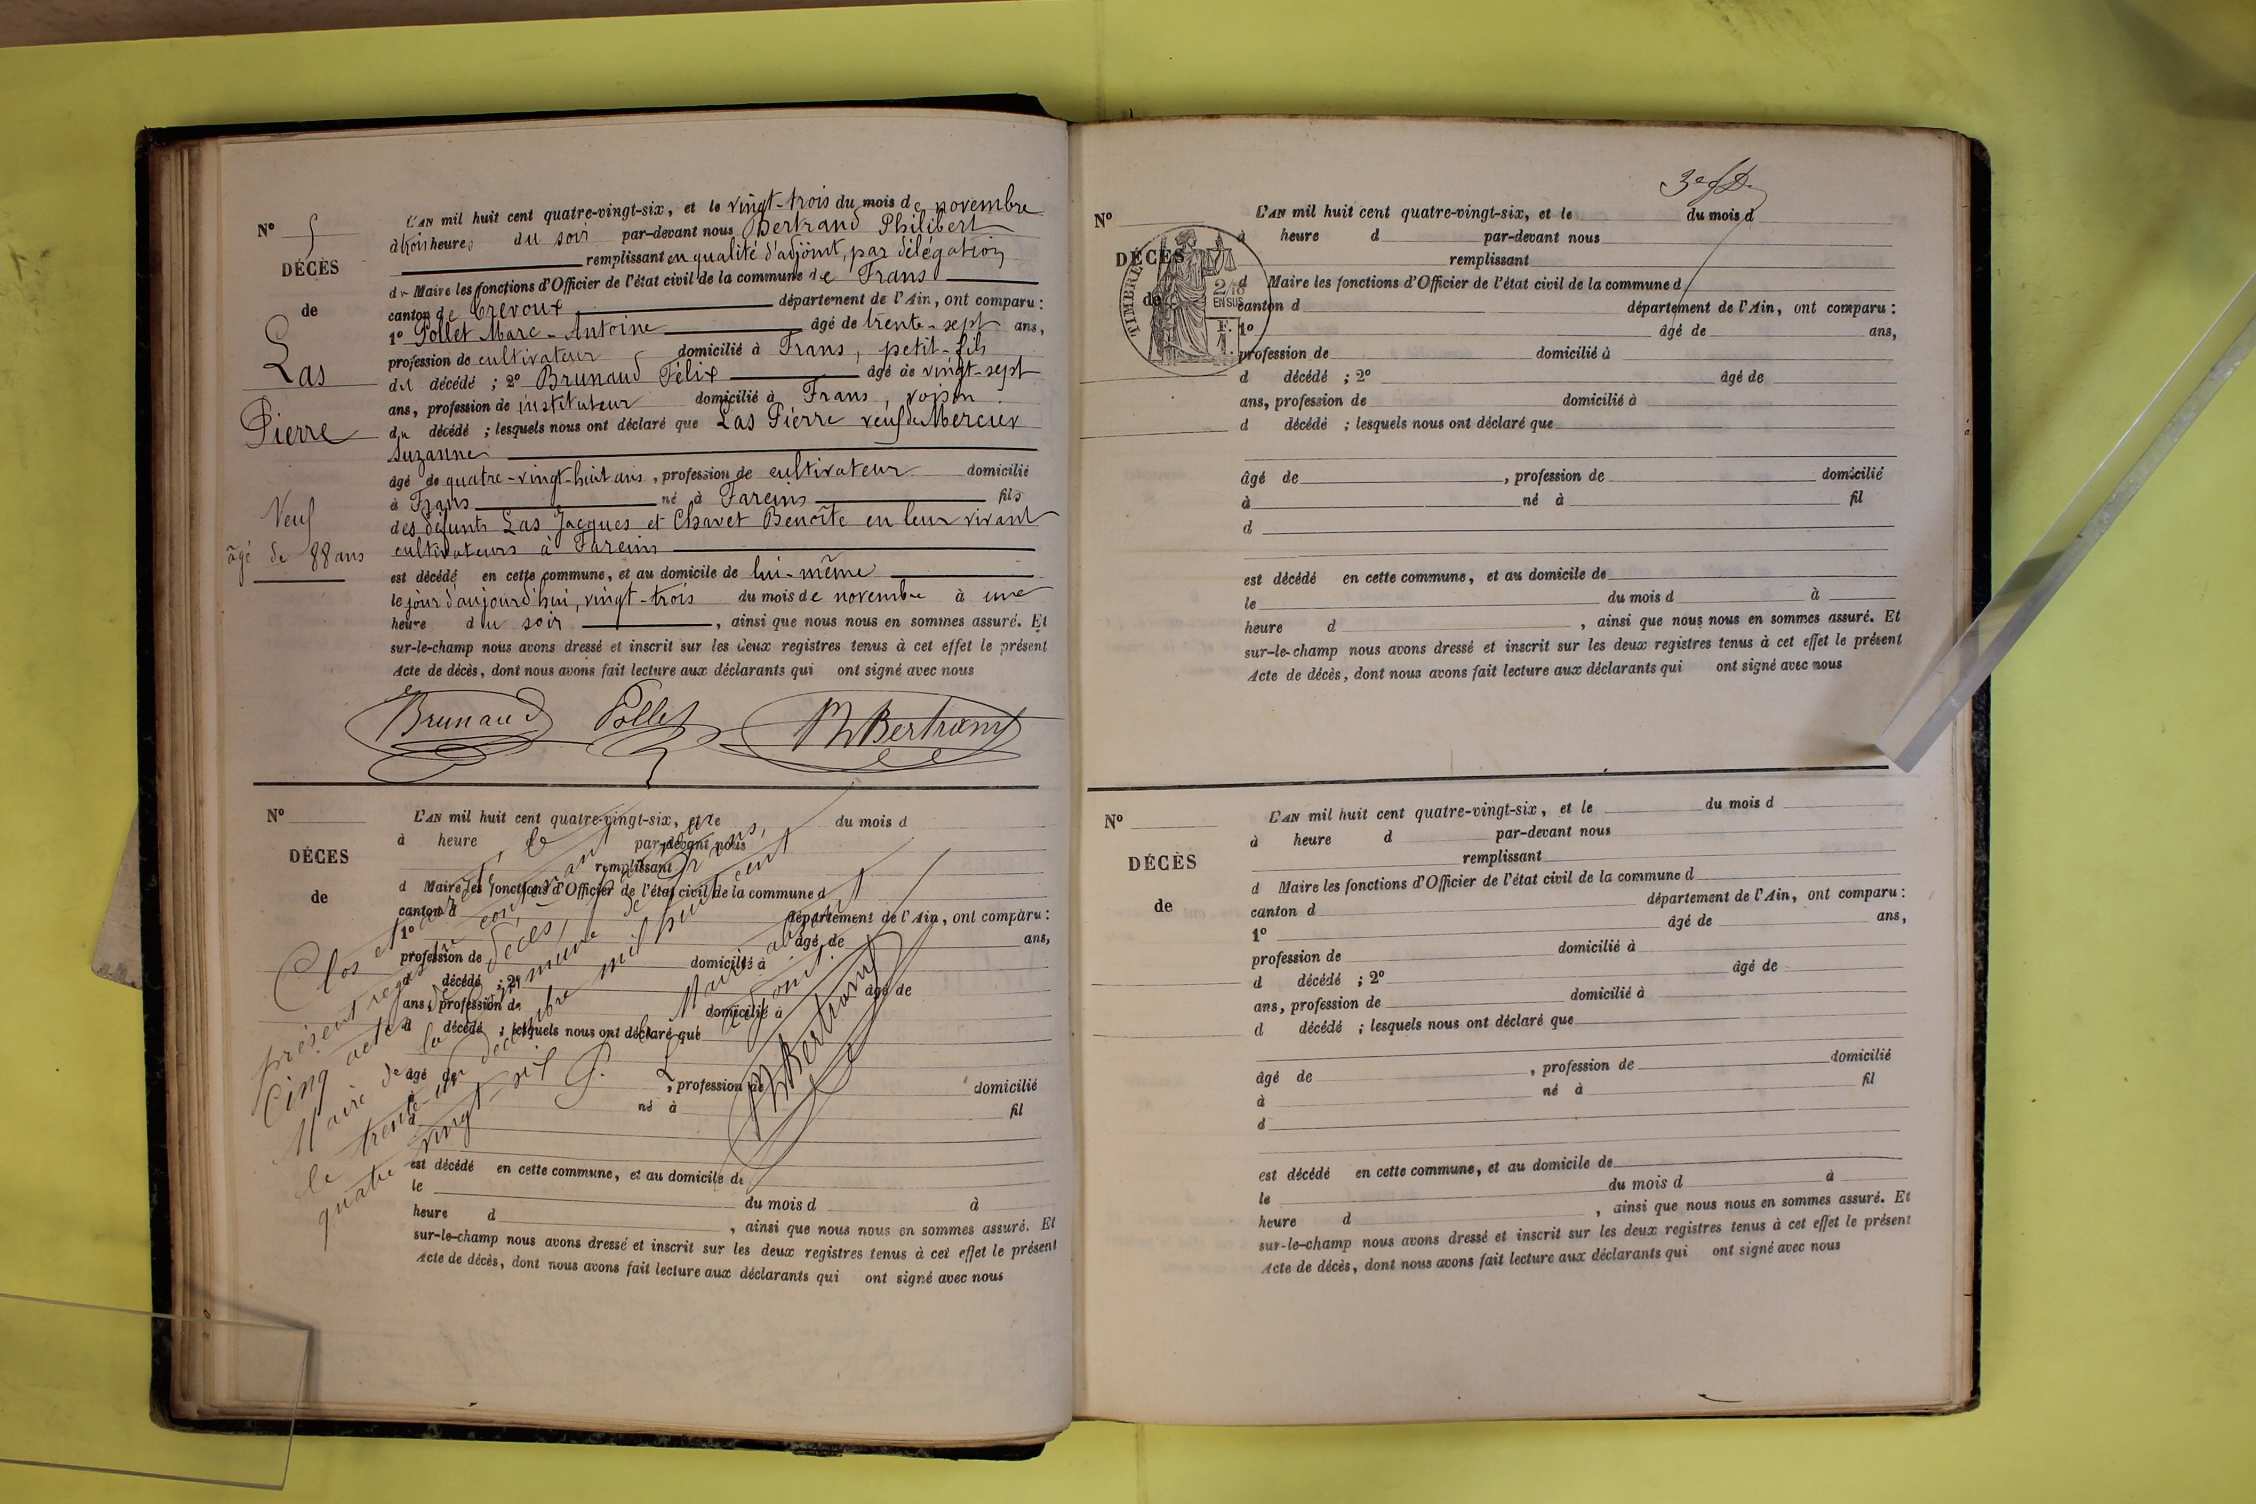 N° 5
DÉCÈS
de
Las
Pierre
Veuf
âgé de 88 ans
L'AN mil huit cent quatre-vingt-six, et le vingt-trois du mois de novembre
à trois heures du soir par-devant nous Bertrand Philibert
remplissant en qualité d'adjoint, par délégation
du Maire les fonctions d'Officier de l'état civil de la commune de Frans
canton de Trévoux département de l'Ain, ont comparu :
1° Pollet Marc-Antoine âgé de trente-sept ans,
profession de cultivateur domicilié à Frans, petit-fils
du décédé ; 2° Brunaud Félix âgé de vingt-sept
ans, profession de instituteur domicilié à Frans, voisin
du décédé ; lesquels nous ont déclaré que Las Pierre veuf de Mercier
Suzanne
âgé de quatre-vingt-huit ans, profession de cultivateur domicilié
à Frans né à Fareins fils
des défunts Las Jacques et Chavet Benoîte en leur vivant
cultivateurs à Fareins
est décédé en cette commune, et au domicile de lui-même
le jour d'aujourd'hui, vingt-trois du mois de novembre à une
heure du soir, ainsi que nous nous en sommes assuré. Et
sur-le-champ nous avons dressé et inscrit sur les deux registres tenus à cet effet le présent
Acte de décès, dont nous avons fait lecture aux déclarants qui ont signé avec nous
Brunaud Pollet Bertrand
N°
DÉCES
de
L'AN mil huit cent quatre-vingt-six, et le du mois d
à heure d par-devant nous
remplissant
d Maire les fonctions d'Officier de l'état civil de la commune d
canton d département de l'Ain, ont comparu :
1° âgé de ans,
profession de domicilié à
d décédé ; 2° âgé de
ans, profession de domicilié à
d décédé ; lesquels nous ont déclaré que
âgé de , profession de domicilié
à né à fil
d
est décédé en cette commune, et au domicile de
le du mois d à
heure d , ainsi que nous nous en sommes assuré. Et
sur-le-champ nous avons dressé et inscrit sur les deux registres tenus à cet effet le présent
Acte de décès, dont nous avons fait lecture aux déclarants qui ont signé avec nous
Clos et arrêté, le
présent registre contenant
Cinq actes de décès, par
Maire de la commune de Frans,
le trente-un décembre mil huit cent
quatre vingt-six
P. Le Maire absent
l'adjoint.
Bertrand
3e
N°
DÉCÈS
de
TIMBRE
2/10
EN SUS
L'AN mil huit cent quatre-vingt-six, et le du mois d
à heure d par-devant nous
remplissant
d Maire les fonctions d'Officier de l'état civil de la commune d
canton d département de l'Ain, ont comparu :
1° âgé de ans,
profession de domicilié à
d décédé ; 2° âgé de
ans, profession de domicilié à
d décédé ; lesquels nous ont déclaré que
âgé de , profession de domicilié
à né à fil
d
est décédé en cette commune, et au domicile de
le du mois d à
heure d , ainsi que nous nous en sommes assuré. Et
sur-le-champ nous avons dressé et inscrit sur les deux registres tenus à cet effet le présent
Acte de décès, dont nous avons fait lecture aux déclarants qui ont signé avec nous
N°
DÉCÈS
de
L'AN mil huit cent quatre-vingt-six, et le du mois d
à heure d par-devant nous
remplissant
d Maire les fonctions d'Officier de l'état civil de la commune d
canton d département de l'Ain, ont comparu :
1° âgé de ans,
profession de domicilié à
d décédé ; 2° âgé de
ans, profession de domicilié à
d décédé ; lesquels nous ont déclaré que
âgé de , profession de domicilié
à né à fil
d
est décédé en cette commune, et au domicile de
le du mois d à
heure d , ainsi que nous nous en sommes assuré. Et
sur-le-champ nous avons dressé et inscrit sur les deux registres tenus à cet effet le présent
Acte de décès, dont nous avons fait lecture aux déclarants qui ont signé avec nous